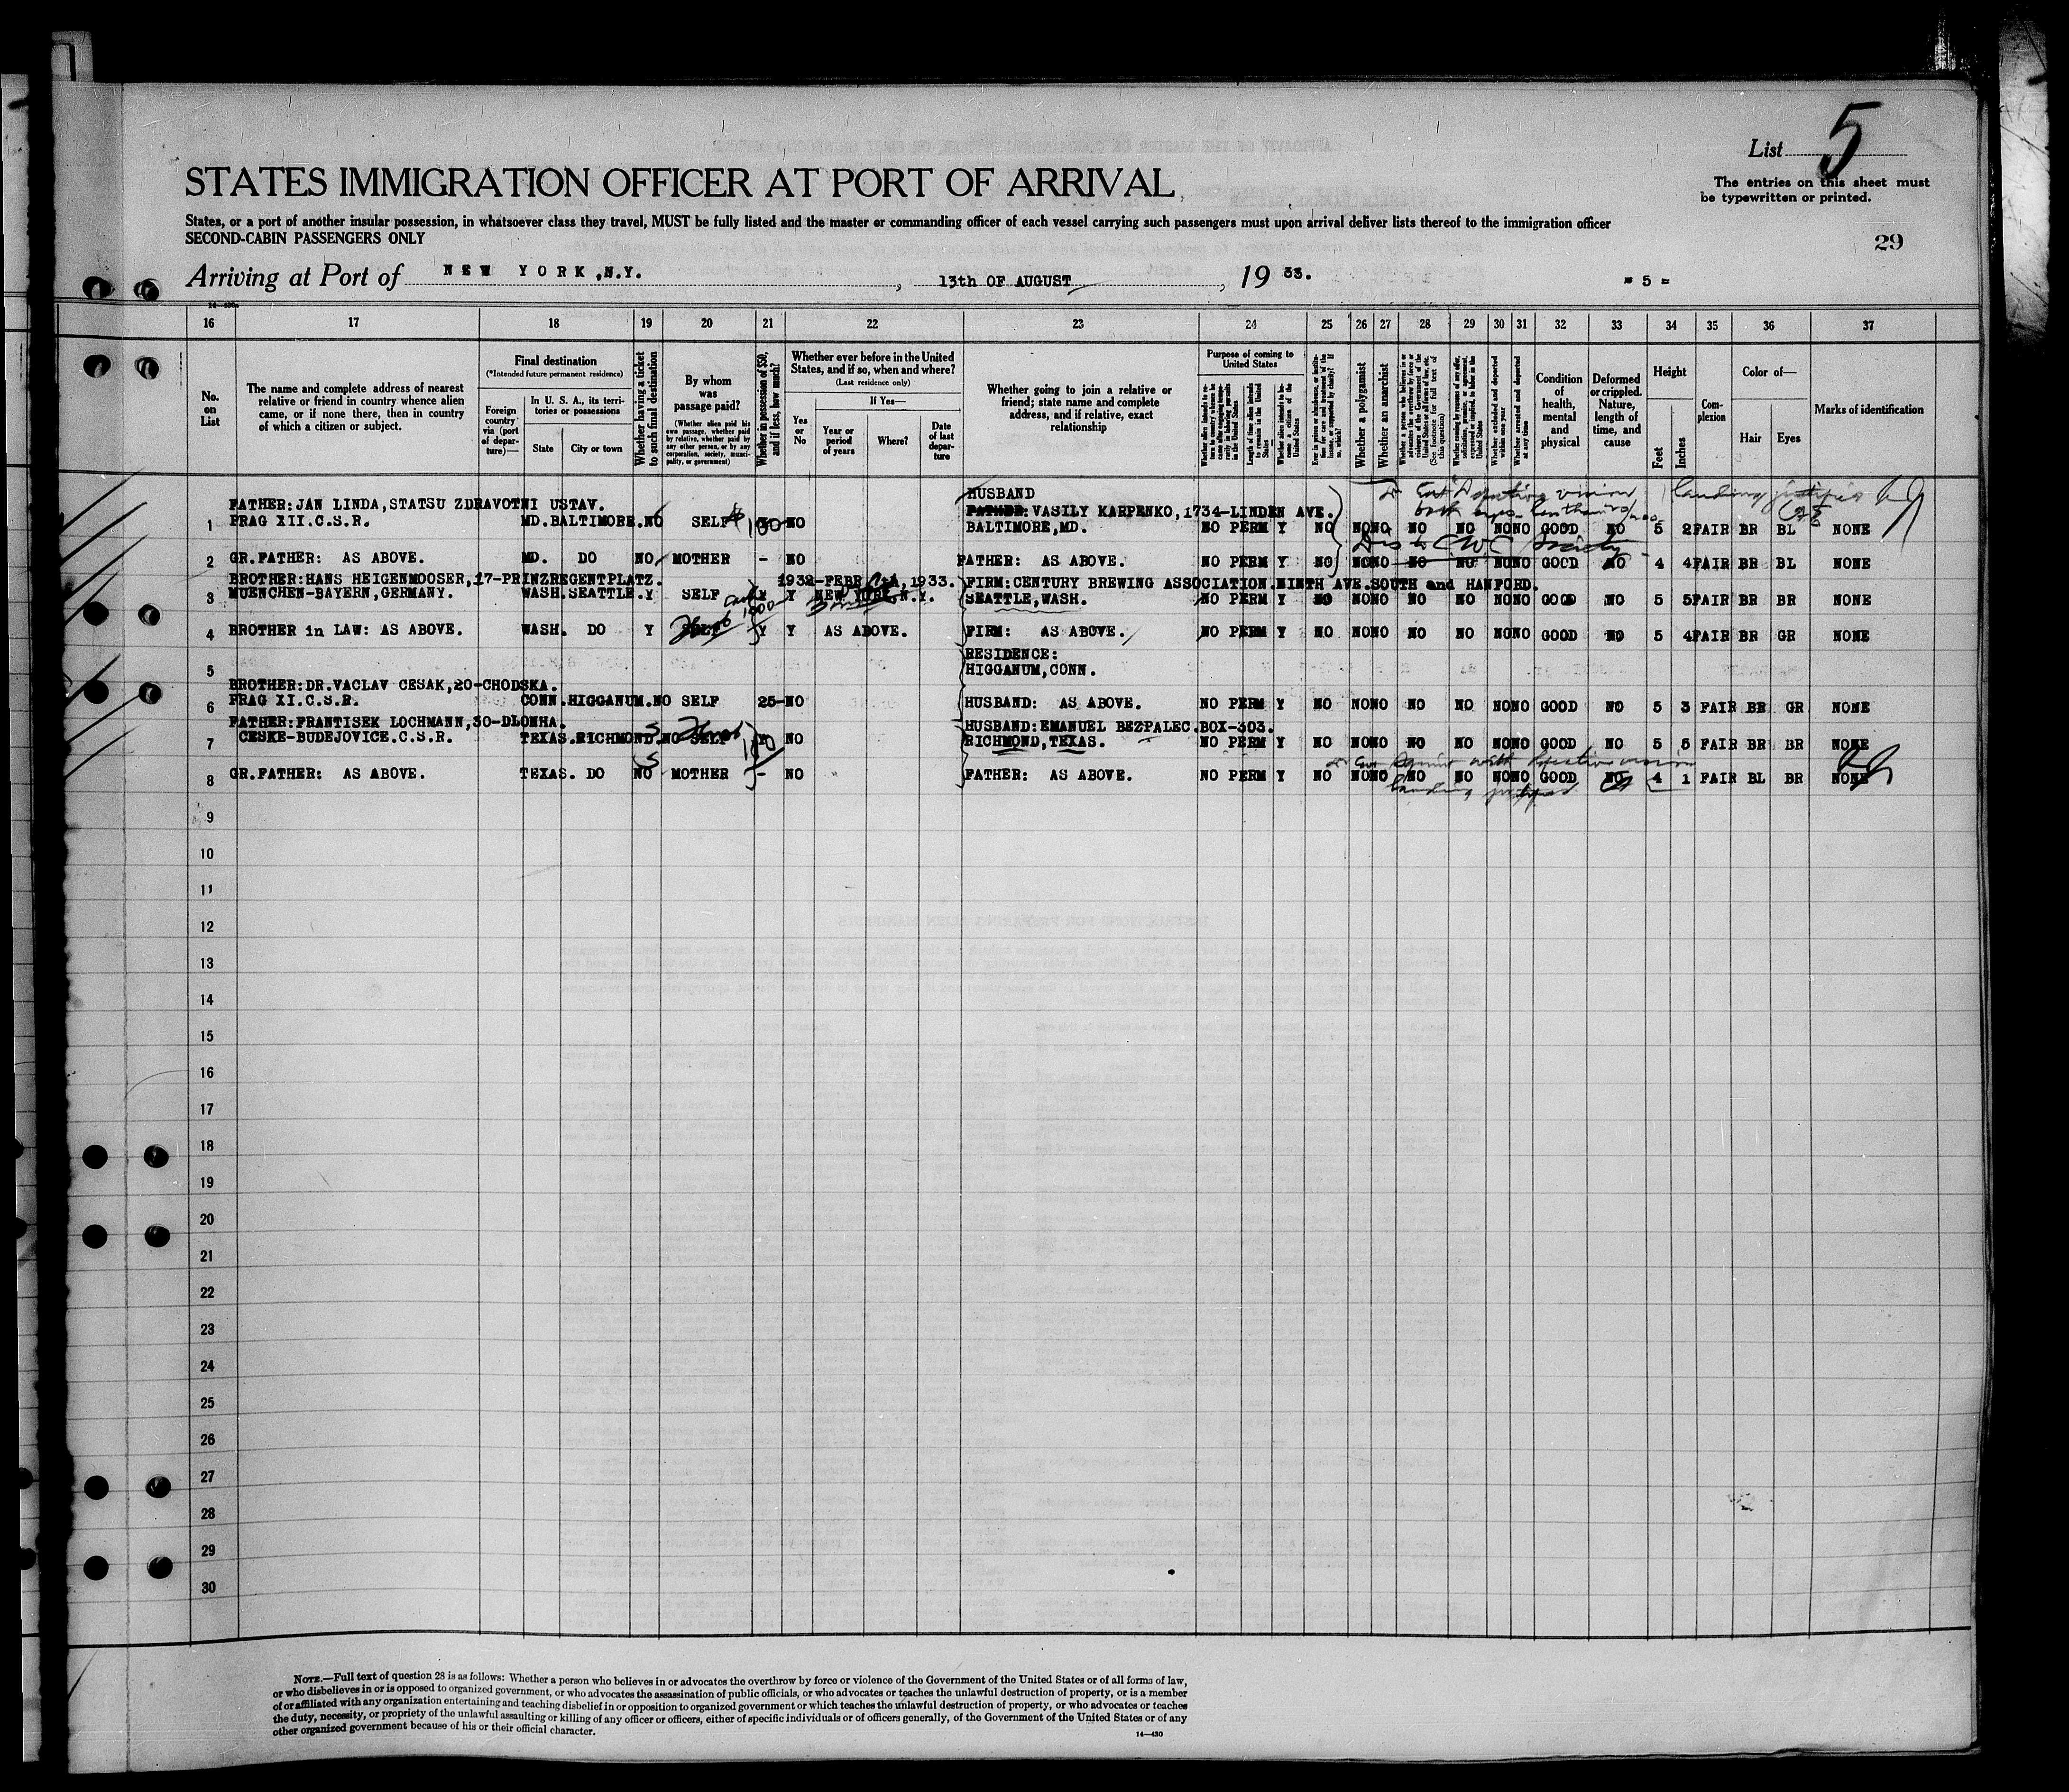 List 5
The entries on this sheet must
be typewritten or printed.
STATES IMMIGRATION OFFICER AT PORT OF ARRIVAL
States, or a port of another insular possession, in whatsoever class they travel, MUST be fully listed and the master or commanding officer of each vessel carrying such passengers must upon arrival deliver lists thereof to the immigration officer
SECOND-CABIN PASSENGERS ONLY
29
Arriving at Port of NEW YORK,N.Y. , 13th OF AUGUST , 19 33.
= 5 =
16 17 18 19 20 21 22 23 24 25 26 27 28 29 30 31 32 33 34 35 36 37
No. on List
The name and complete address of nearest relative or friend in country whence alien came, or if none there, then in country of which a citizen or subject.
Final destination
(*Intended future permanent residence)
Foreign country via (port of departure)—
In U. S. A., its territories or possessions
State
City or town
Whether having a ticket to such final destination
By whom was passage paid?
(Whether alien paid his own passage, whether paid by relative, whether paid by any other person, or by any corporation, society, municipality, or government)
Whether in possession of $50, and if less, how much?
Whether ever before in the United States, and if so, when and where?
(Last residence only)
Yes or No
If Yes—
Year or period of years
Where?
Date of last departure
Whether going to join a relative or friend; state name and complete address, and if relative, exact relationship
Purpose of coming to United States
Whether a polygamist
Whether an anarchist
Whether excluded and deported within one year
Whether arrested and deported at any time
Condition of health, mental and physical
Deformed or crippled. Nature, length of time, and cause
Height
Feet
Inches
Complexion
Color of—
Hair
Eyes
Marks of identification
HUSBAND
FATHER:JAN LINDA,STATSU ZDRAVOTNI USTAV. FATHER: VASILY KARPENKO,1734-LINDEN AVE.
1 PRAG XII.C.S.R. MD.BALTIMORE.NO SELF 100 NO BALTIMORE,MD. NO PERM Y NO NO NO NO NO NO NO GOOD NO 5 2 FAIR BR BL NONE
2 GR.FATHER: AS ABOVE. MD. DO NO MOTHER - NO FATHER: AS ABOVE. NO PERM Y NO NO NO NO NO NO NO GOOD NO 4 4 FAIR BR BL NONE
BROTHER:HANS HEIGENMOOSER,17-PRINZREGENTPLATZ. 1932-FEBR , 1933. FIRM:CENTURY BREWING ASSOCIATION.NINTH AVE.SOUTH and HANFORD.
3 MUENCHEN-BAYERN,GERMANY. WASH.SEATTLE.Y SELF Y Y NEW YORK N.Y. SEATTLE,WASH. NO PERM Y NO NO NO NO NO NO NO GOOD NO 5 5 FAIR BR BR NONE
4 BROTHER in LAW: AS ABOVE. WASH. DO Y Y Y AS ABOVE. FIRM: AS ABOVE. NO PERM Y NO NO NO NO NO NO NO GOOD NO 5 4 FAIR BR GR NONE
RESIDENCE:
5 HIGGANUM,CONN.
BROTHER:DR.VACLAV CESAK,20-CHODSKA.
6 PRAG XI.C.S.R. CONN.HIGGANUM.NO SELF 25-NO HUSBAND: AS ABOVE. NO PERM Y NO NO NO NO NO NO NO GOOD NO 5 3 FAIR BR GR NONE
FATHER:FRANTISEK LOCHMANN,30-DLOUHA. HUSBAND:EMANUEL BEZPALEC.BOX-303.
7 CESKE-BUDEJOVICE.C.S.R. TEXAS.RICHMOND.NO SELF Y NO RICHMOND,TEXAS. NO PERM Y NO NO NO NO NO NO NO GOOD NO 5 5 FAIR BR BR NONE
8 GR.FATHER: AS ABOVE. TEXAS. DO NO MOTHER - NO FATHER: AS ABOVE. NO PERM Y NO NO NO NO NO NO NO GOOD NO 4 1 FAIR BL BR NONE
9
10
11
12
13
14
15
16
17
18
19
20
21
22
23
24
25
26
27
28
29
30
NOTE.—Full text of question 28 is as follows: Whether a person who believes in or advocates the overthrow by force or violence of the Government of the United States or of all forms of law,
or who disbelieves in or is opposed to organized government, or who advocates the assassination of public officials, or who advocates or teaches the unlawful destruction of property, or is a member
of or affiliated with any organization entertaining and teaching disbelief in or opposition to organized government or which teaches the unlawful destruction of property, or who advocates or teaches
the duty, necessity, or propriety of the unlawful assaulting or killing of any officer or officers, either of specific individuals or of officers generally, of the Government of the United States or of any
other organized government because of his or their official character.
14—430